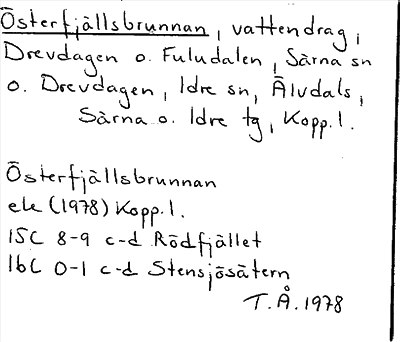 Österfjällsbrunnan, vattendrag,
Drevdagen o. Fuludalen, Särna sn
o. Drevdagen, Idre sn, Älvdals,
Särna o. Idre tg, Kopp.l.
Österfjällsbrunnan
ek (1978) Kopp.l.
15C 8-9 c-d Rödfjället
16C 0-1 c-d Stensjösätern
T.Å.1978